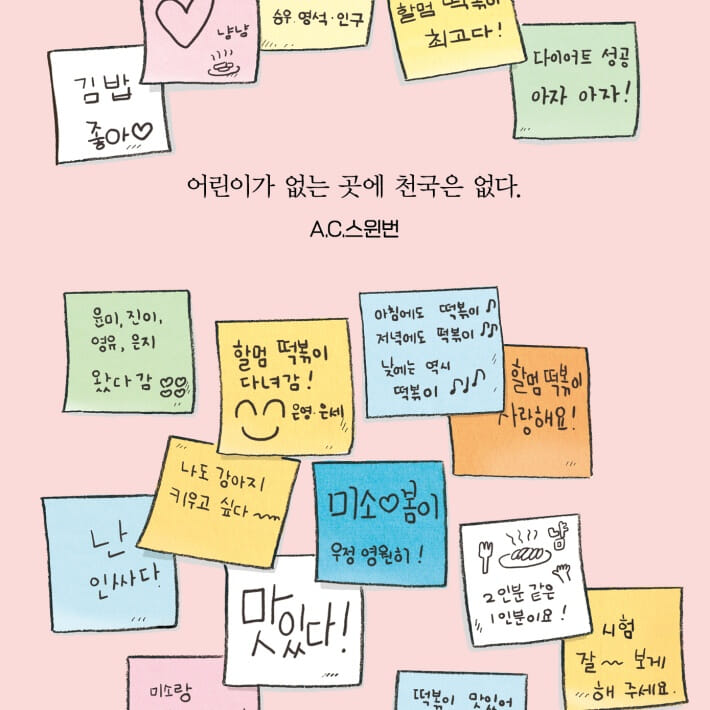 냠냠
승우·영석·인구
할멈 떡볶이
최고다!
김밥
좋아♡
다이어트 성공
아자 아자!
어린이가 없는 곳에 천국은 없다.
A.C.스윈번
윤미, 진이,
영유, 은지
왔다 감
할멈 떡볶이
다녀감!
은영·은세
아침에도 떡볶이♪
저녁에도 떡볶이♪♪
낮에는 역시
떡볶이♪♪♪
할멈 떡볶이
사랑해요!
나도 강아지
키우고 싶다~~
미소♡봄이
우정 영원히!
난
인싸다.
맛있다!
2인분 같은
1인분이요!
시험
잘~~ 보게
해 주세요.
미소랑
떡볶이 맛있어